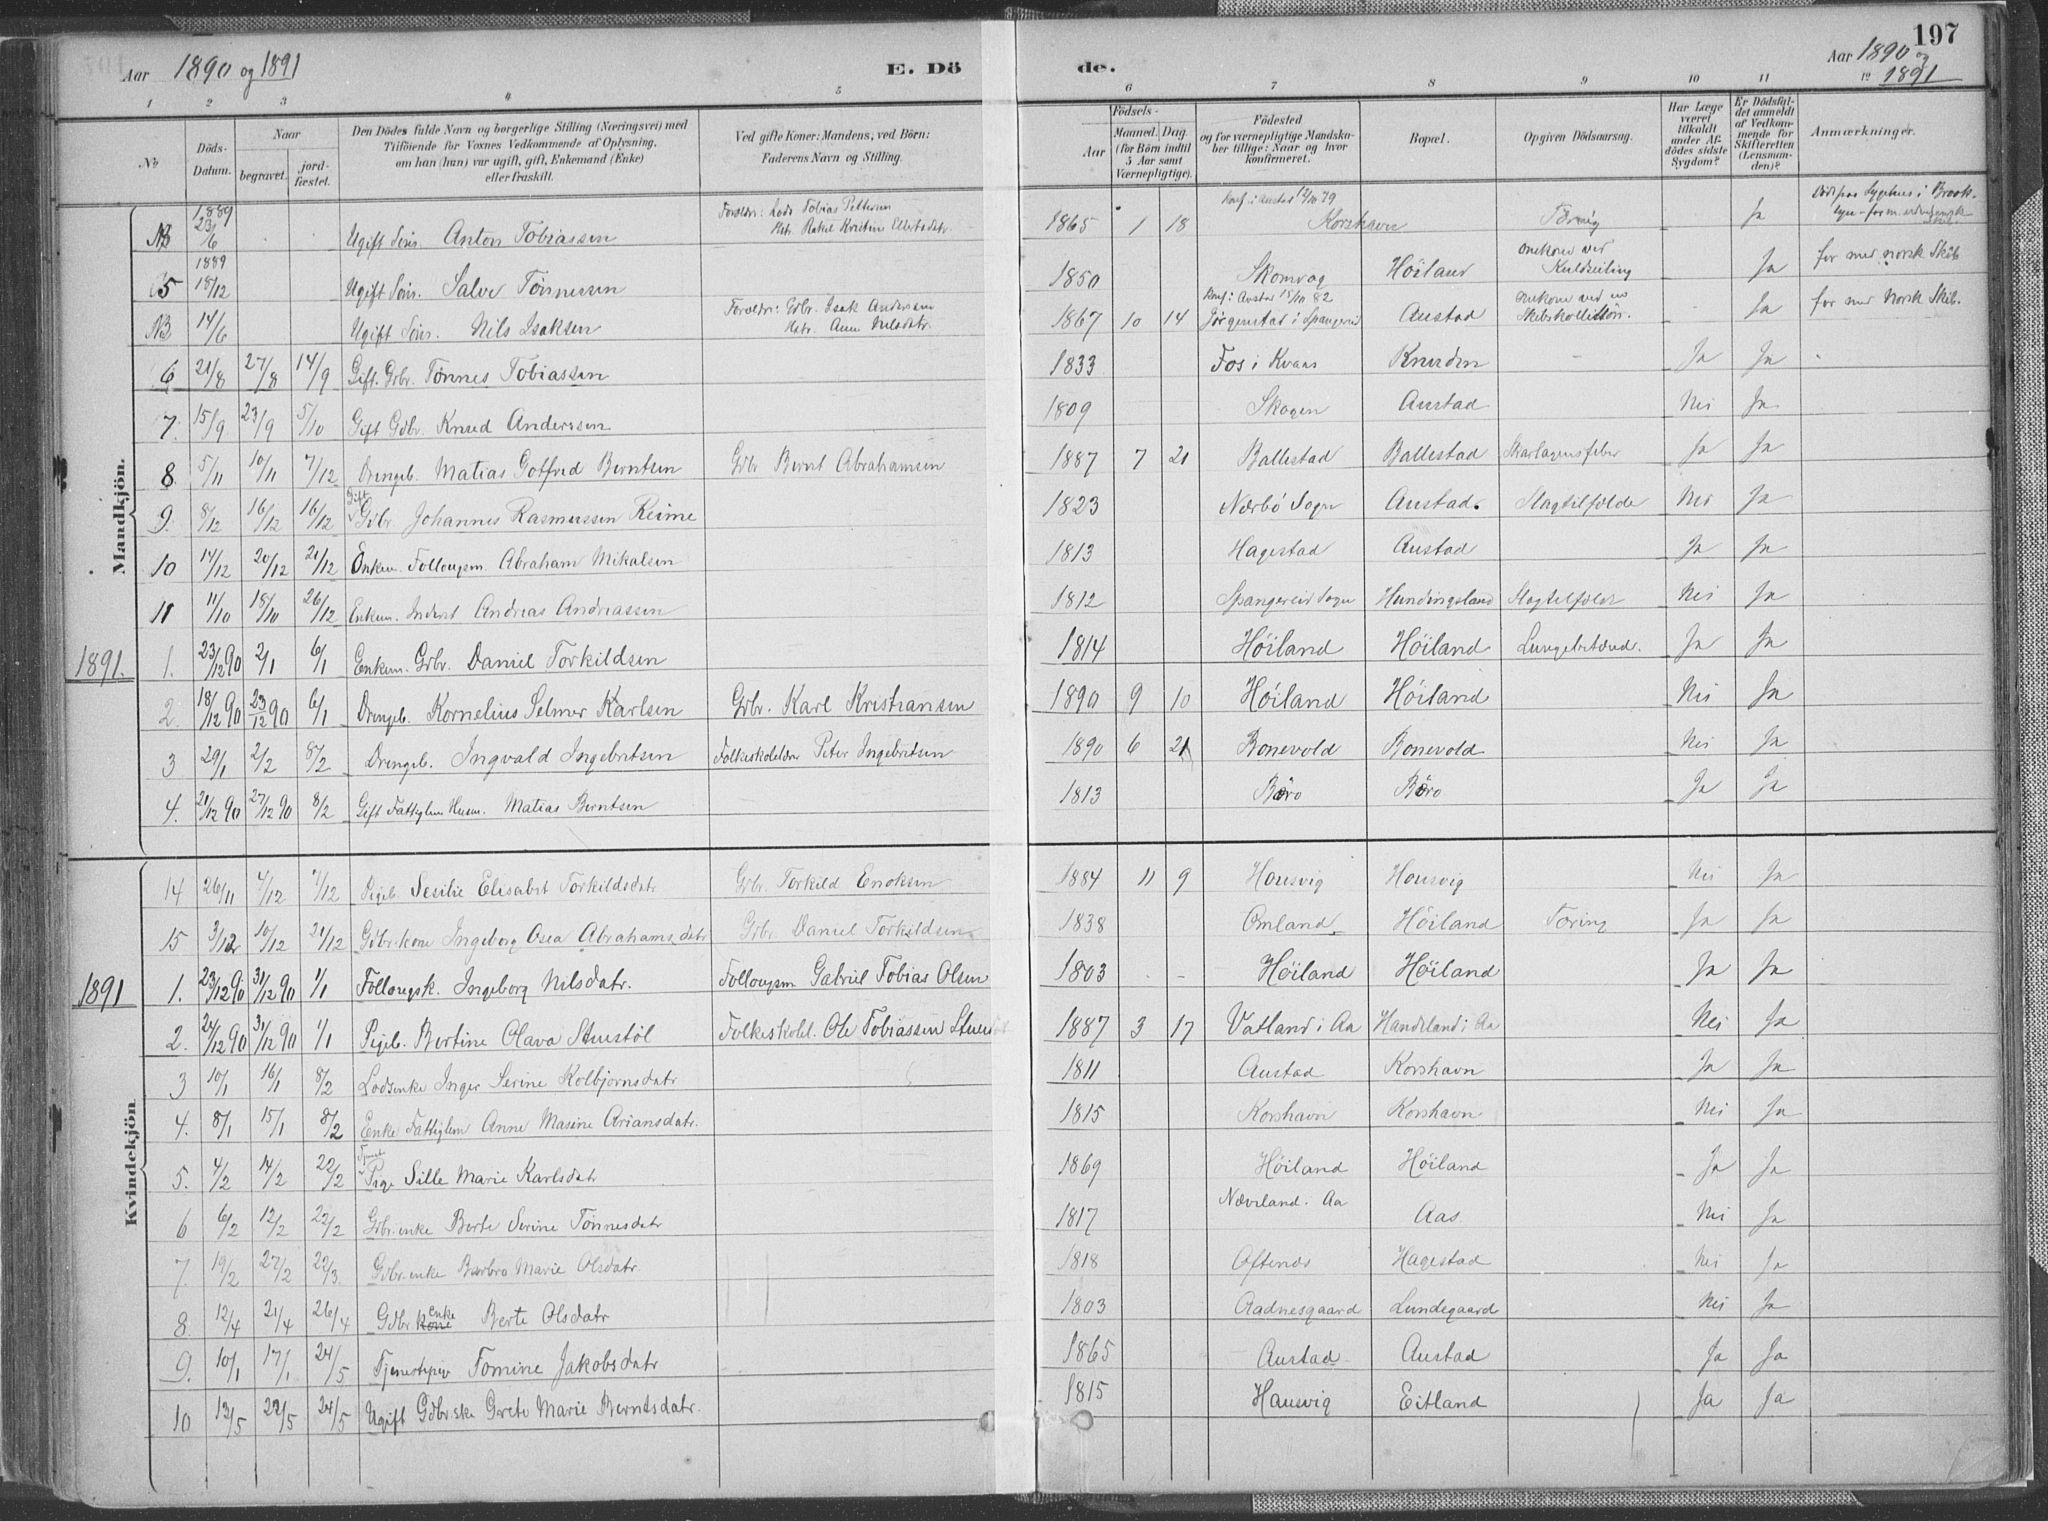 197
Aar 1890 og 1891 E. Dö de. Aar 1890 og 1891
1 2 3 4 5 6 7 8 9 10 11 12
No Döds-Datum. Naar begravet. jord-fæstet. Den Dödes fulde Navn og borgerlige Stilling (Næringsvei) med Tilföiende for Voxnes Vedkommende af Oplysning, om han (hun) var ugift, gift, Enkemand (Enke) eller fraskilt. Ved gifte Koner: Mandens, ved Börn: Faderens Navn og Stilling. Födsels- Aar Maaned. Dag. (for Börn indtil 5 Aar samt Værnepligtige). Födested og for værnepligtige Mandska-ber tillige: Naar og hvor konfirmeret. Bopæl. Opgiven Dödsaarsag. Har Læge været tilkaldt under Af-dödes sidste Sygdom? Er Dödsfal-det anmeldt af Vedkom-mende for Skifteretten (Lensman-den)? Anmærkninger.
Mandkjön.
NB 1889 23/6 Ugift Söm. Anton Tobiassen Foreldr: Lods Tobias Pettersen Hstr. Rakel Kristine Ellertsdatr. 1865 1 18 Konf. i Austad 12/10 79 Korshavn Tæring Ja Död paa Sygehus i Brook-lyn
5 1889 18/12 Ugift Söm. Salve Tönnessen 1850 Skomrag Höiland omkom ved Kuldseiling Ja for med norsk Skib
NB 14/6 Ugift Söm. Nils Isaksen Foreldr: Gdbr. Isak Andersen Hstr. Anne Nilsdatr. 1867 10 14 Konf. i Austad 15/10 82 Jörgenstad i Spangereid Austad omkom ved en Skibskollision. Ja for med Norsk Skib.
6 21/8 27/8 14/9 Gift. Gdbr. Tönnes Tobiassen 1833 Fos i Kvaas Knuden - Ja Ja
7. 15/9 23/9 5/10 Gift Gdbr. Knud Anderssen 1809 Skogen Austad Nei Ja
8 5/11 10/11 7/12 Drengeb. Matias Gotfred Berntsen Gdbr Bernt Abrahamsen 1887 7 21 Ballestad Ballestad Skarlagensfeber Ja Ja
9. 8/12 16/12 16/12 Gift Gdbr. Johannes Rasmussen Reime 1823 Nærbö Sogn Austad. Slagtilfælde Nei Ja
10 14/12 20/12 21/12 Enkem. Follougsm. Abraham Mikalsen 1813 Hagestad Austad Ja Ja
11 11/10 18/10 26/12 Enkem. Inderst Andreas Andreassen 1812 Spangereid Sogn Hundingsland Slagtilfælde Nei Ja
1891. 1. 23/12 90 2/1 6/1 Enkem. Gdbr. Daniel Torkildsen 1814 Höiland Höiland Lungebetænd. Ja Ja
2. 18/12 90 23/12 90 6/1 Drengeb. Kornelius Selmer Karlsen Gdbr. Karl Kristiansen 1890 9 10 Höiland Höiland Nei Ja
3 29/1 2/2 8/2 Drengeb. Ingvald Ingebretsen Folkeskolelær Peter Ingebretsen 1890 6 21 Bonevold Bonevold Nei Ja
4. 21/12 90 27/12 90 8/2 Gift Fattiglem Husm. Matias Berntsen 1813 Böro Böro Ja Ja
Kvindekjön
14 26/11 7/12 7/12 Pigeb. Sesilie Elisabet Torkildsdatr Gdbr. Torkild Enoksen 1884 11 9 Housvig Housvig Nei Ja
15 3/12 10/12 21/12 Gdbr.kone Ingeborg Osea Abrahamsdatr Gdbr. Daniel Torkildsen 1838 Omland Höiland Tæring Ja Ja
1891 1. 23/12 90 31/12 90 1/1 Follougsk. Ingeborg Nilsdatr. Follougsm Gabriel Tobias Olsen 1803 - - Höiland Höiland Ja Ja
2. 24/12 90 31/12 90 1/1 Pigeb. Bertine Olava Stuestöl Folkeskolel. Ole Tobiassen 1887 3 17 Vatland i Aa Handeland i Aa Nei Ja
3 10/1 16/1 8/2 Lodsenke Inger Serine Kolbjornsdatr 1811 Austad Korshavn Ja Ja
4. 8/1 15/1 8/2 Enke Fattiglem Anne Masine Ariansdatr. 1815 Korshavn Korshavn Nei Ja
5. 4/2 14/2 22/2 Pige Sille Marie Karlsdatr 1869 Höiland Höiland Ja Ja
6 6/2 12/2 22/2 Gdbr.enke Berte Serine Tönnesdatr 1817 Næveland. Aa Aas. Nei Ja
7. 19/2 27/2 22/3. Gdbr.enke Barbro Marie Olsdatr. 1818 Oftenes Hagestad Nei Ja
8 12/4 21/4 26/4 Gdbr kone enke Berte Olsdatr 1803 Aadnesgaard Lundegaard Nei Ja
9. 10/1 17/1 24/5 Tjenestepige Tomine Jakobsdatr 1865 Austad Austad Ja Ja
10 12/5 22/5 24/5 Ugift Gdbr.ske Grete Marie Berntsdatr. 1815 Hausvig Eitland Ja Ja